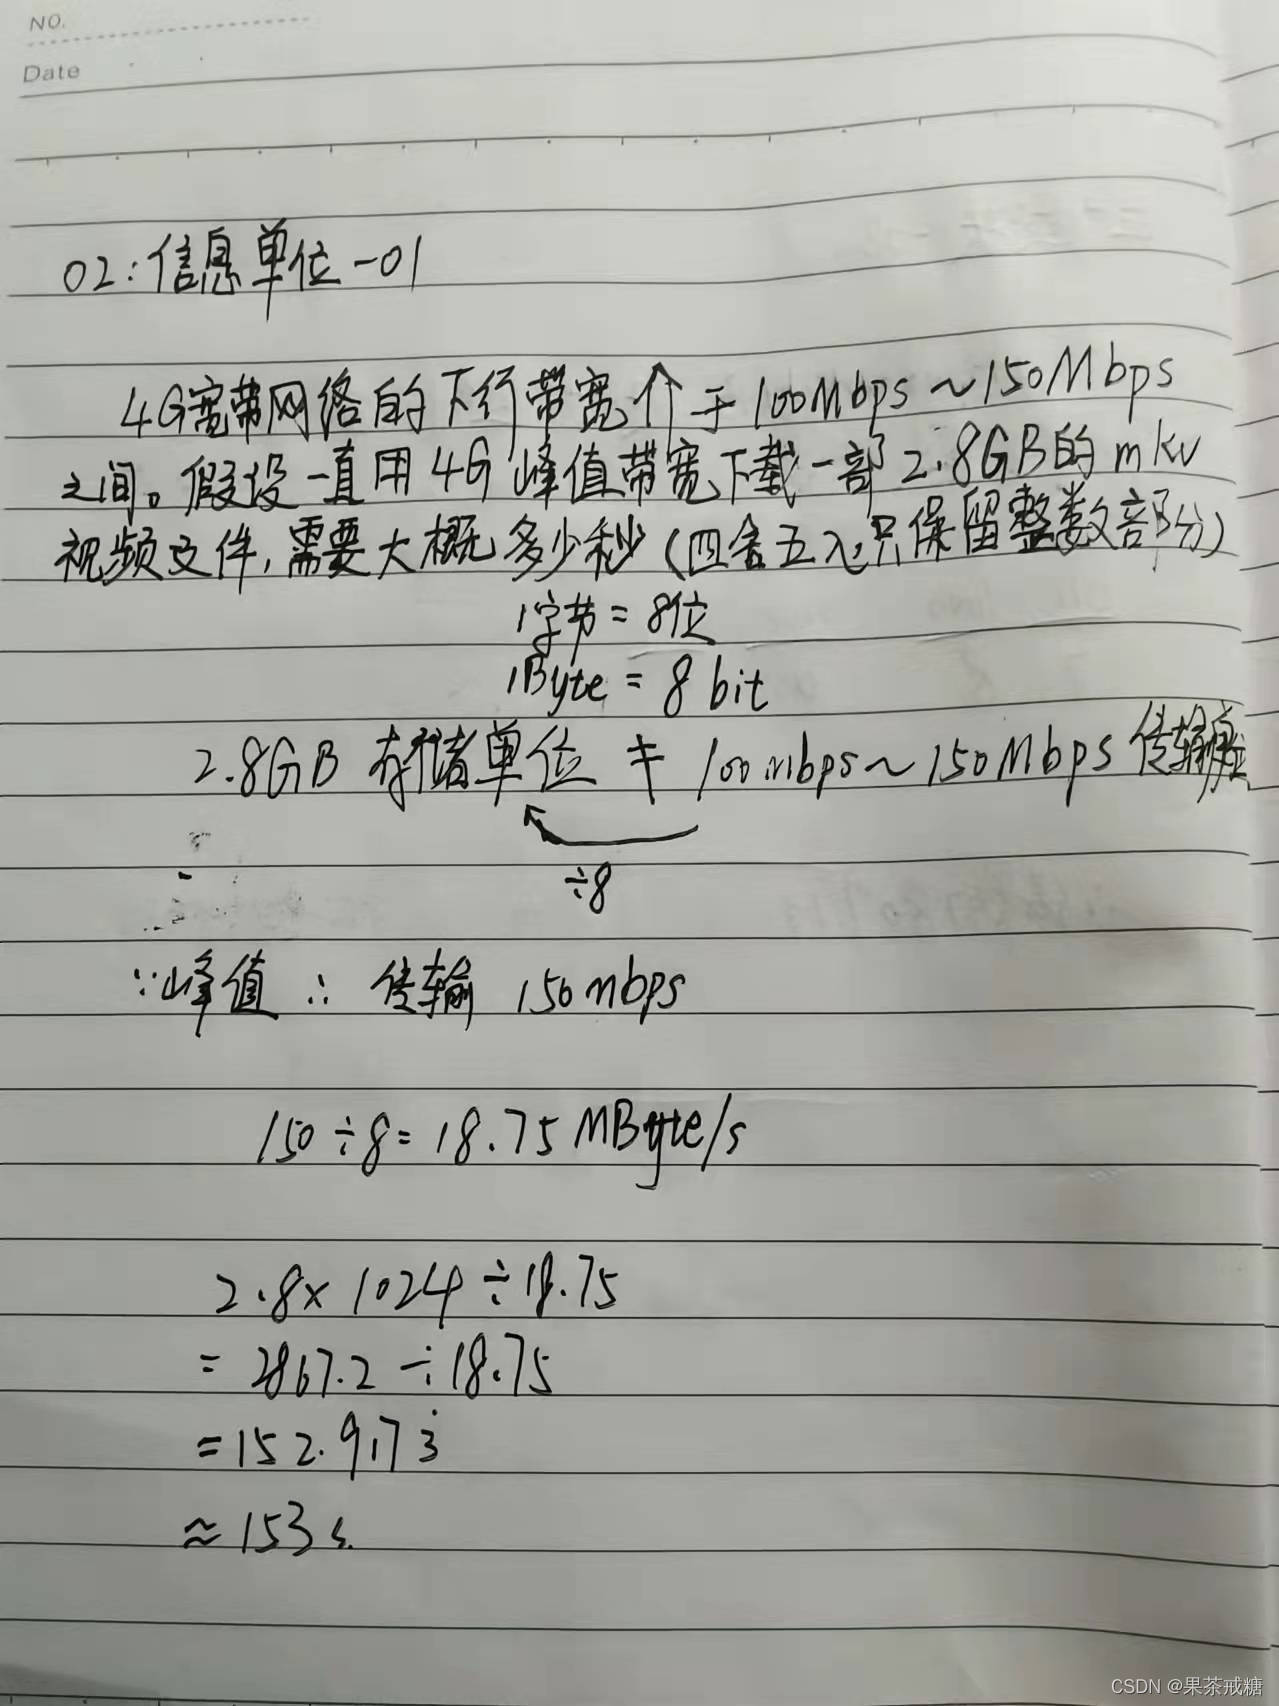 NO.
Date
02:信息单位-01
4G宽带网络的下行带宽介于100Mbps~150Mbps
之间。假设一直用4G峰值带宽下载一部2.8GB的mkv
视频文件,需要大概多少秒(四舍五入只保留整数部分)
1字节=8位
1Byte=8bit
2.8GB 存储单位 ≠ 100mbps~150Mbps 传输单位
÷8
∵峰值 ∴ 传输 150mbps
150÷8=18.75MByte/s
2.8×1024÷18.75
=2867.2÷18.75
=152.9173̇
≈153s.
CSDN @果茶戒糖